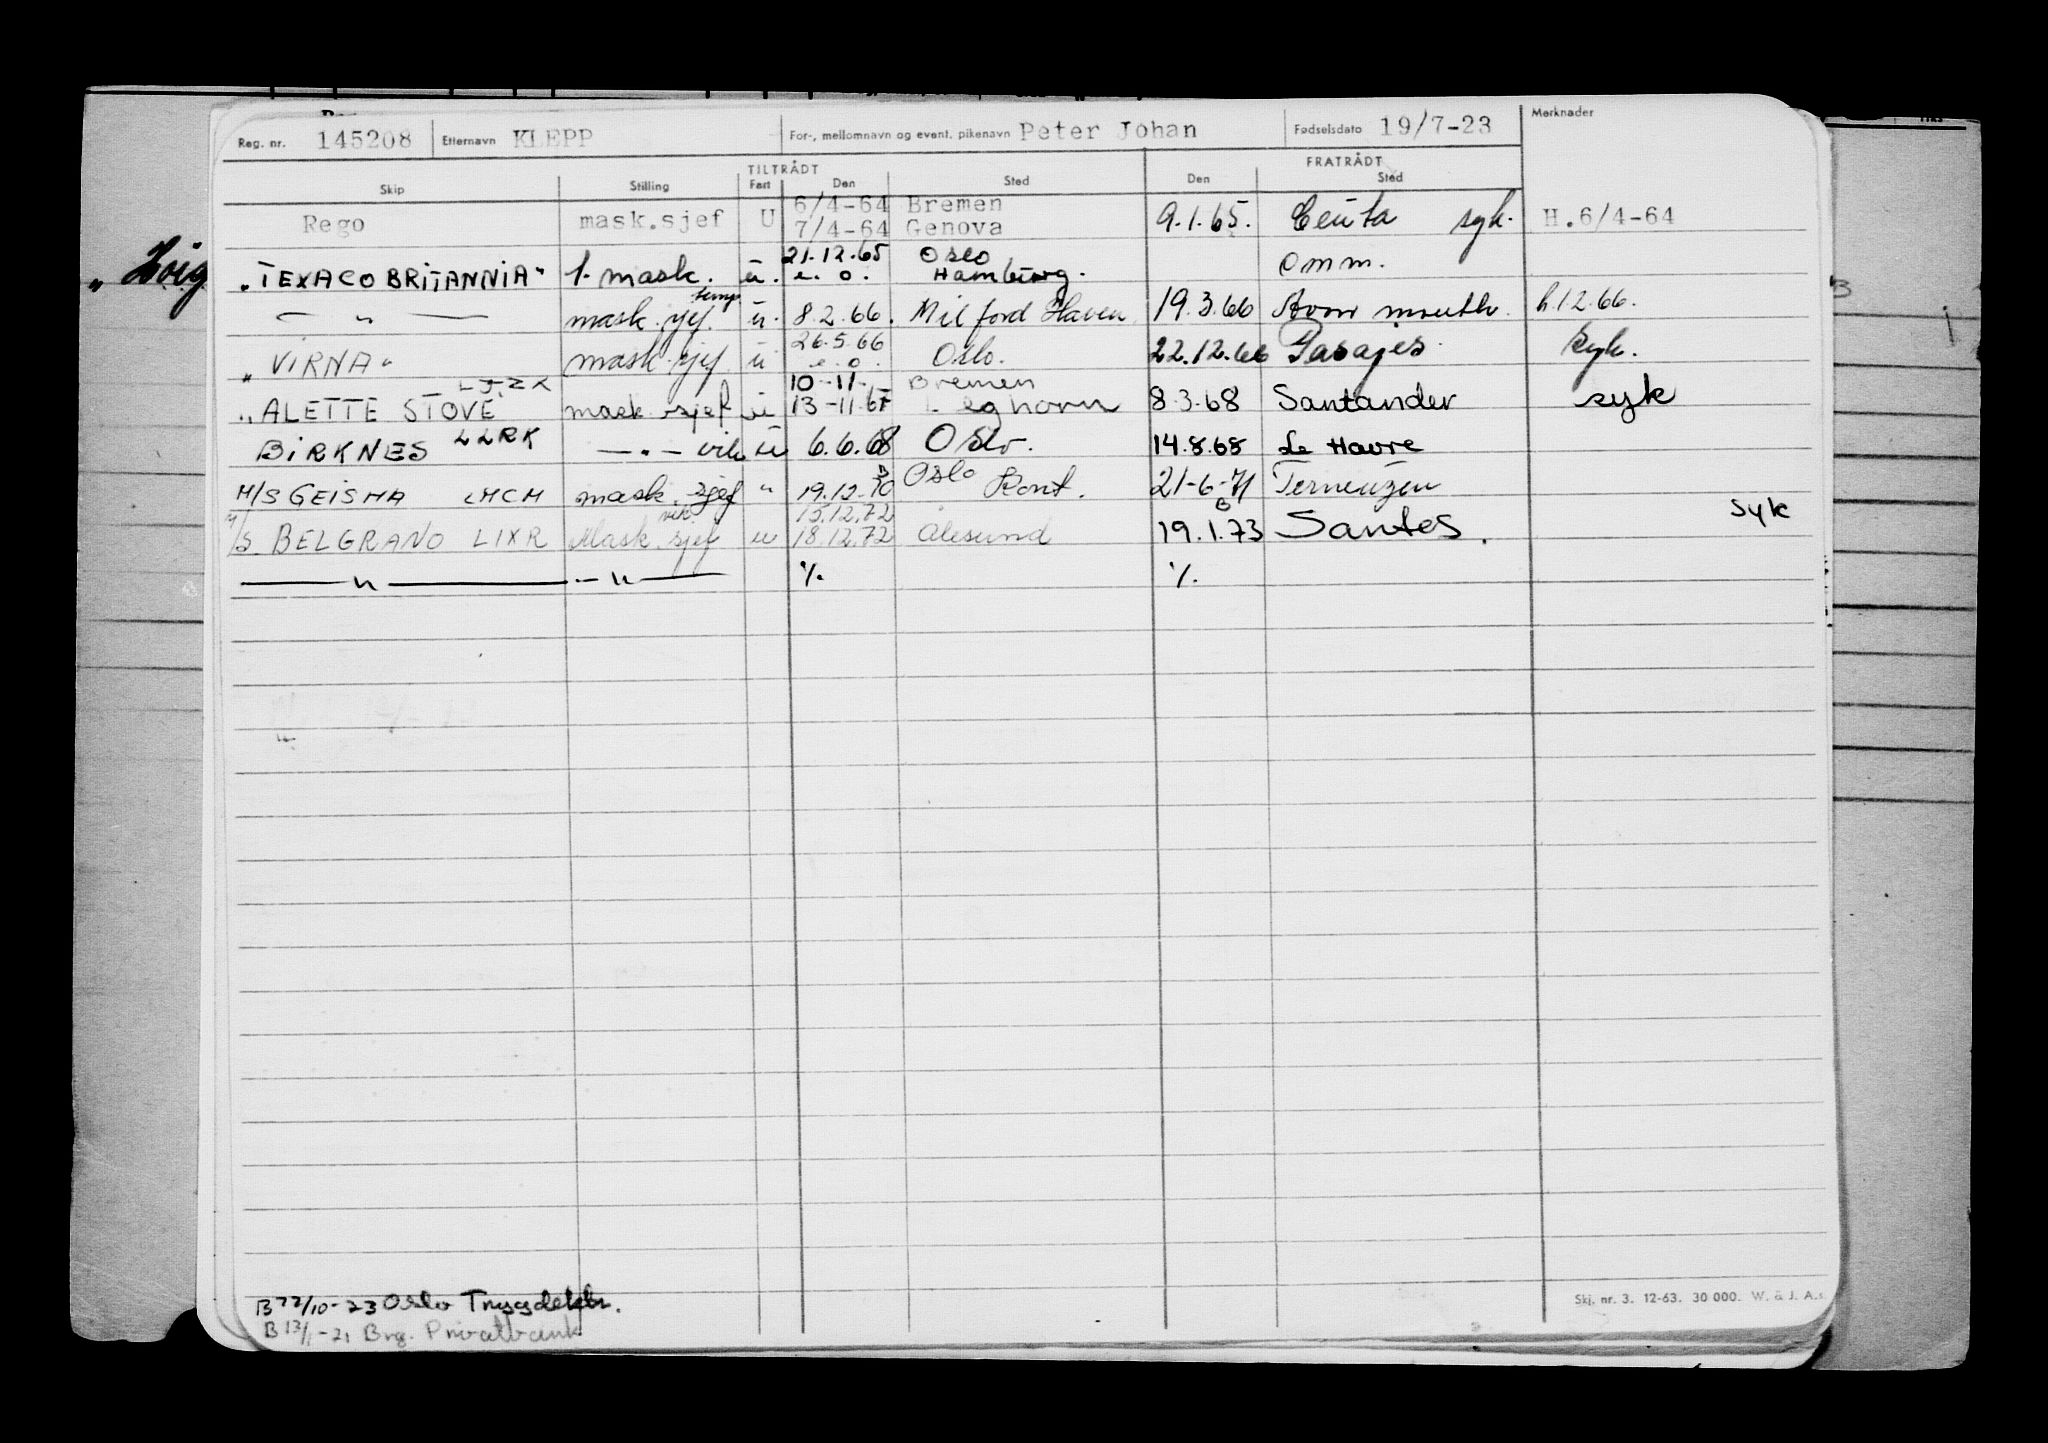 Reg. nr. 145208 Etternavn KLEPP For-, mellomnavn og event. pikenavn Peter Johan Fødselsdato 19/7-23 Merknader
TILTRÅDT FRATRÅDT
Skip Stilling Fart Den Sted Den Sted
6/4-64 Bremen
Rego mask.sjef U 7/4-64 Genova 9.1.65. Ceuta syk. H.6/4-64
21.12.65 Oslo
"TEXACO BRITANNIA" 1. mask. u. e. o. Hamburg. omm.
temp
— " — mask.sjef. u. 8.2.66. Milford Haven 19.3.66 Avon mouth. h.12.66.
26.5.66
"VIRNA" mask.sjef u e. o. Oslo. 22.12.66 Pasajes syk.
10-11- Bremen
"ALETTE STOVE" mask.sjef u 13-11.67 Leghorn 8.3.68 Santander syk
BIRKNES LLRK — " — vik u 6.6.68 Oslo. 14.8.68 Le Havre
M/S GEISHA LMCM mask.sjef " 19.12.70 Oslo Kont. 21-6-71 Terneuzen
vik. 15.12.72
M/S BELGRANO LIXR Mask.sjef u 18.12.72 Ålesund 19.1.73 Santos. syk
— " — — " — %. %.
B 22/10-23 Oslo Trygdektr.
B 13/1-21 Brg. Privatbank
Skj. nr. 3. 12-63. 30 000. W. & J. A.s